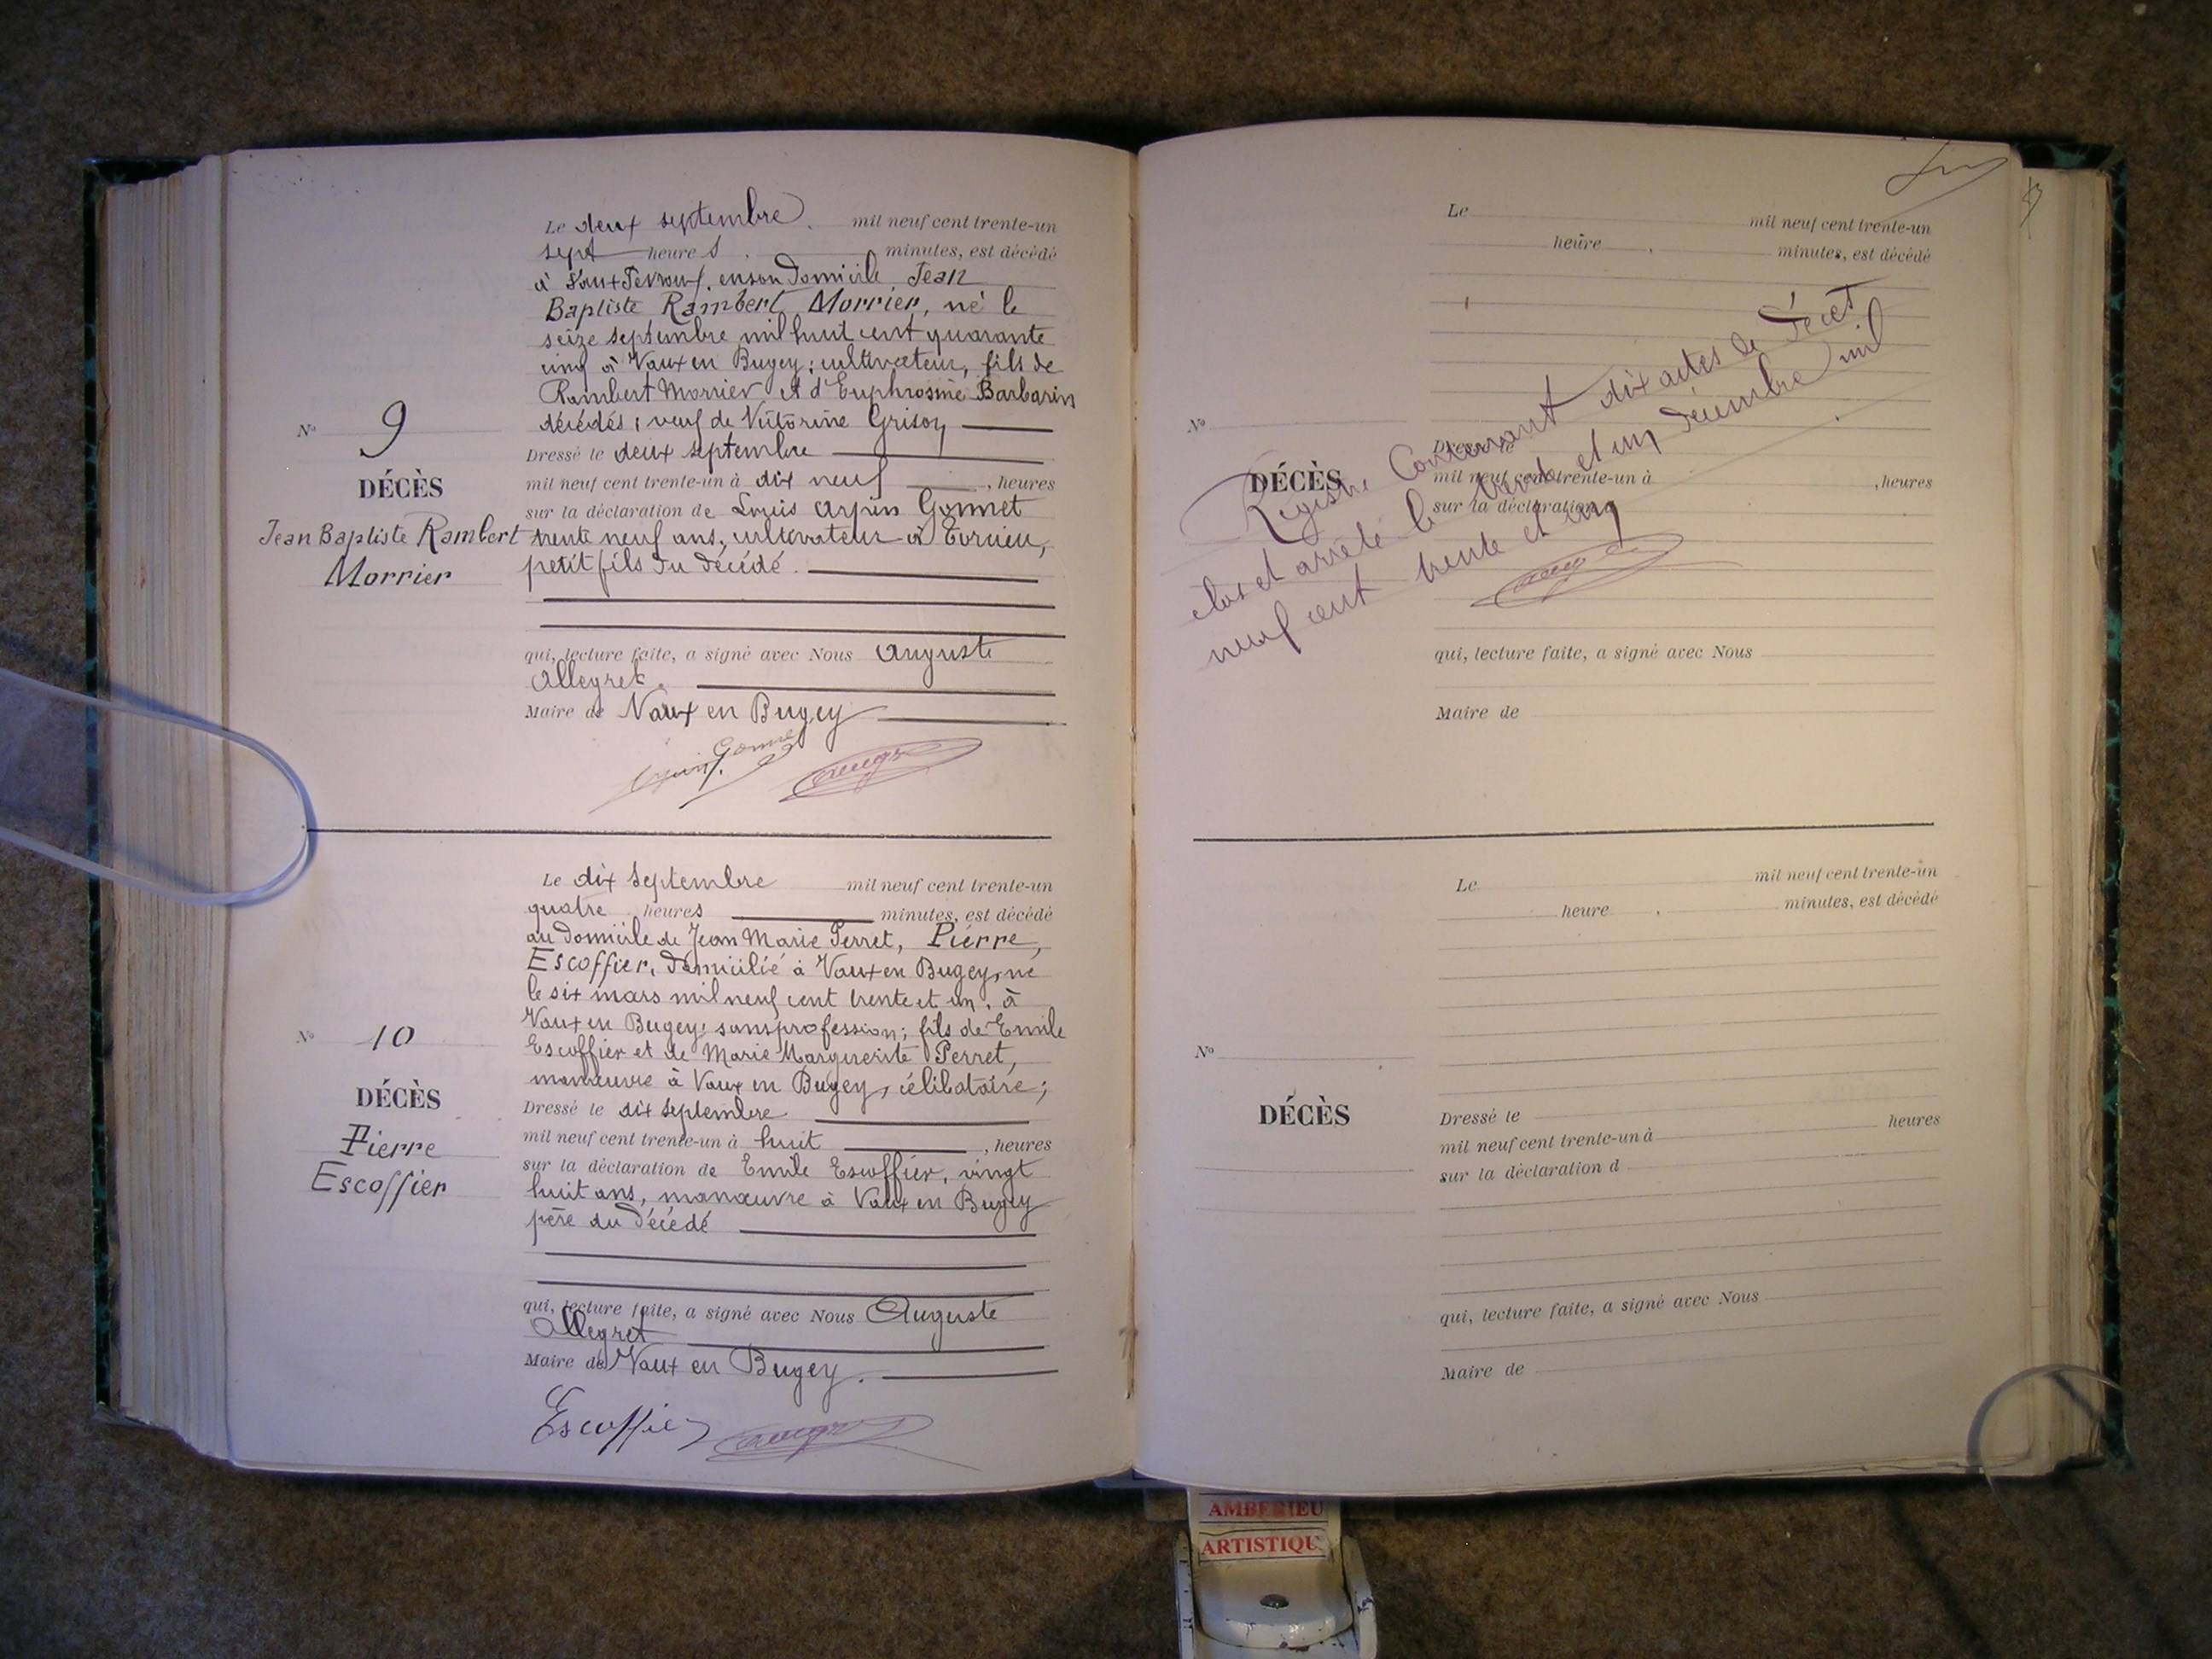 Le deux septembre mil neuf cent trente-un
sept heures minutes, est décédé
à Vaux Fevroux, en son domicile, Jean
Baptiste Rambert Morrier, né le
seize septembre mil huit cent quarante
cinq à Vaux en Bugey; cultivateur, fils de
Rambert Morrier et d'Euphrosine Barbarin
décédés; veuf de Victorine Grison
Dressé le deux septembre
mil neuf cent trente-un à dix neuf, heures
sur la déclaration de Louis Arpin Gonnet
trente neuf ans, cultivateur à
petit fils du décédé.
qui, lecture faite, a signé avec Nous Auguste
Alleyret.
Maire de Vaux en Bugey
Gonnet
N° 9
DÉCÈS
Jean Baptiste Rambert
Morrier
Le dix septembre mil neuf cent trente-un
quatre heures minutes, est décédé
au domicile de Jean Marie Perret, Pierre,
Escoffier, domicilié à Vaux en Bugey, né
le six mars mil neuf cent trente et un, à
Vaux en Bugey, sans profession; fils de Emile
Escoffier et de Marie Marguerite Perret,
manœuvre à Vaux en Bugey, célibataire;
Dressé le dix septembre
mil neuf cent trente-un à huit, heures
sur la déclaration de Emile Escoffier, vingt
huit ans, manœuvre à Vaux en Bugey
père du décédé
qui, lecture faite, a signé avec Nous Auguste
Alleyret
Maire de Vaux en Bugey.
Escoffier
N° 10
DÉCÈS
Pierre
Escoffier
Le mil neuf cent trente-un
heure , minutes, est décédé
N°
DÉCÈS
Dressé le
mil neuf cent trente-un à , heures
sur la déclaration
qui, lecture faite, a signé avec Nous
Maire de
Registre Contenant dix actes de Décès
clos et arrêté le trente et un décembre mil
neuf cent trente et un
Le mil neuf cent trente-un
heure , minutes, est décédé
N°
DÉCÈS
Dressé le
mil neuf cent trente-un à heures
sur la déclaration d
qui, lecture faite, a signé avec Nous
Maire de
AMBERIEU
ARTISTIQU